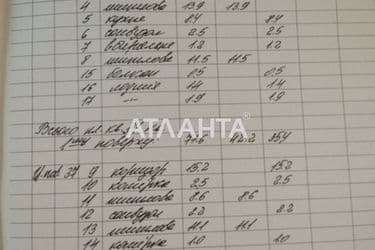 4 житлова 13.9 13.9
5 кухня 8.4 8.4
6 санвузол 2.5 2.5
7 вбиральня 1.2 1.2
8 житлова 11.5 11.5
15 балкон 0.5 0.5
16 лоджія 1.4 1.4
17 —„— 1.9 1.9
Всього пл. кв.
АТЛАНТА
поверху 77.6 42.2 35.4
9 коридор 15.2 15.2
10 комірка 2.5 2.5
11 житлова 8.6 8.6
12 санвузол 2.2 2.2
13 житлова 11.1 11.1
14 комірка 1.0 1.0